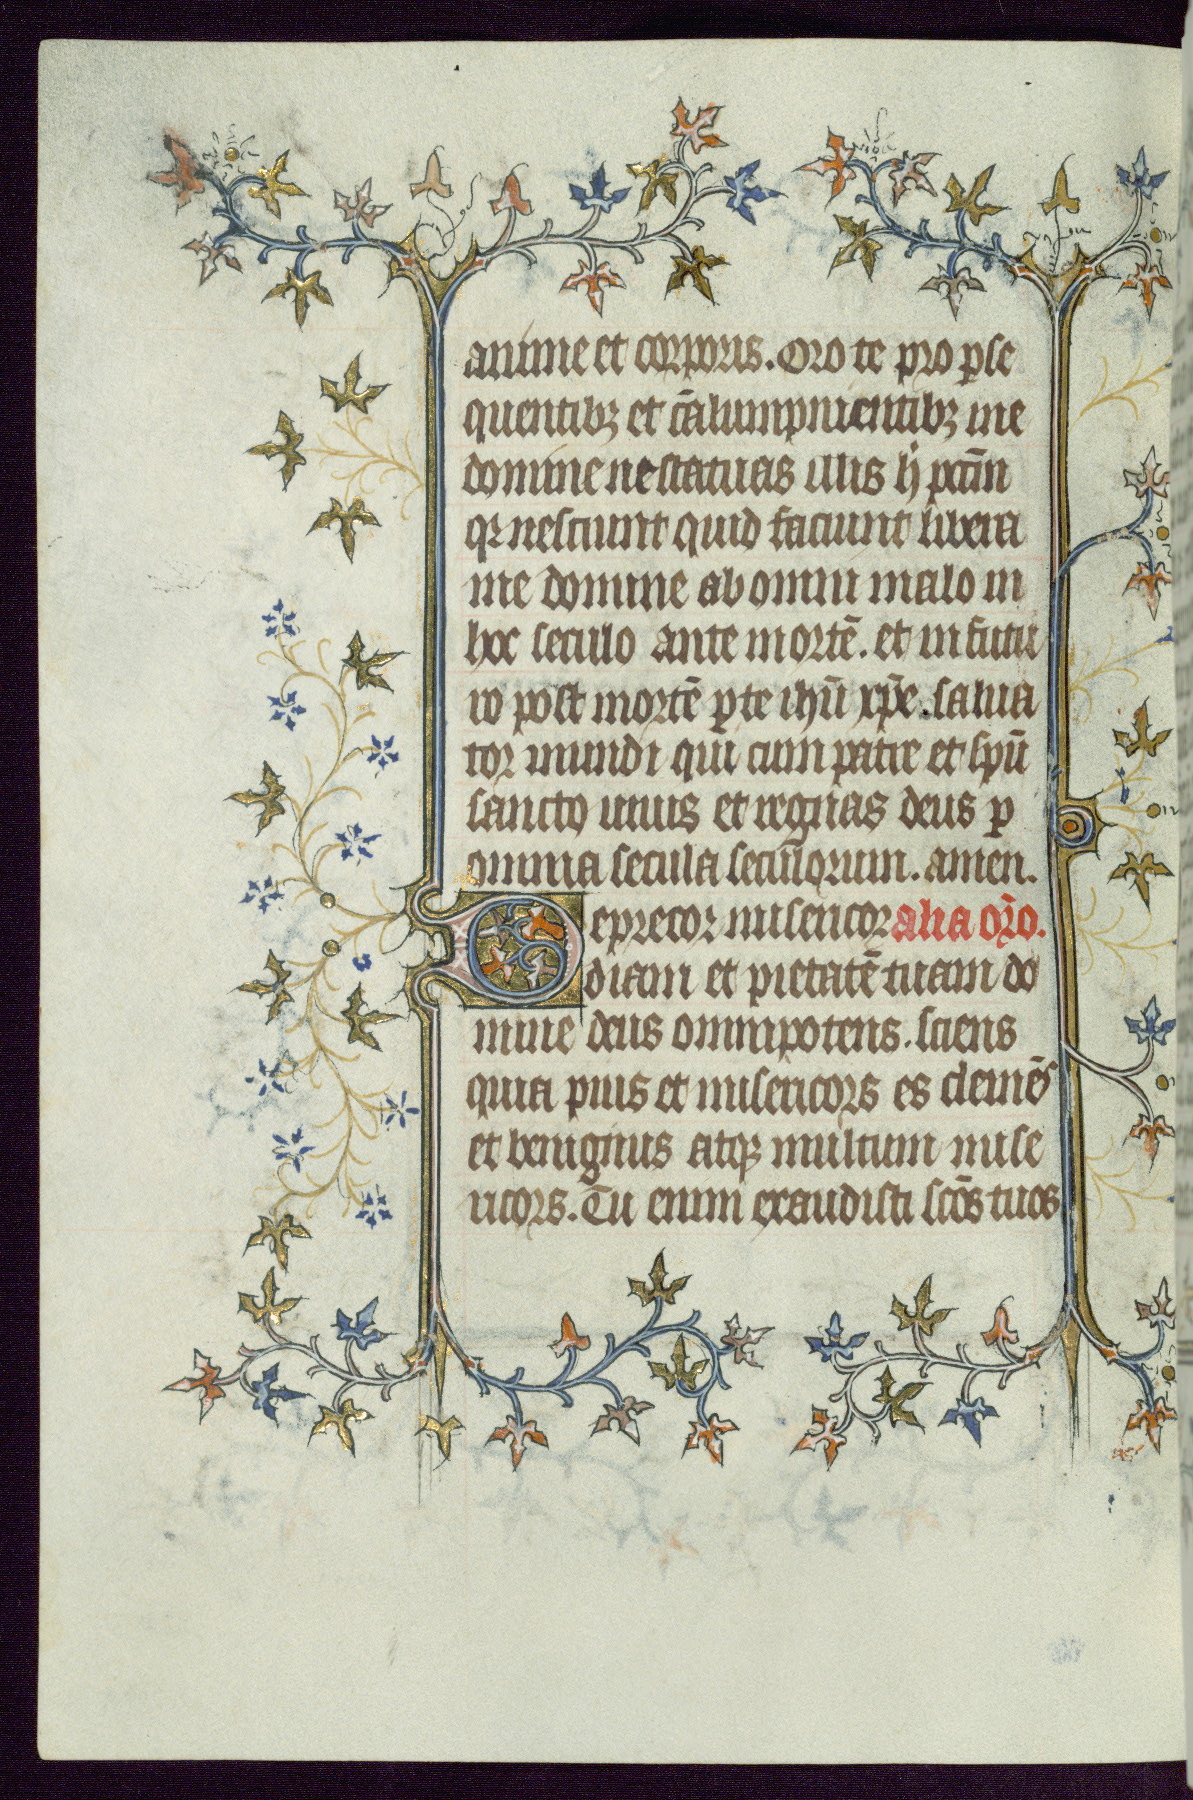 anime et corporis. Oro te pro ꝑse
quentibꝫ et cãlumpnientibꝫ me
domine ne statuas illis h̍ pctm̄
qꝛ nesciunt quid faciunt libera
me domine ab omni malo in
hoc seculo ante mortē. et in futu
ro post mortē ꝑ te ihū xp̄e. salua
tor mundi qui cum patre et spū
sancto uiuis et regnas deus ꝑ
omnia secula seculorum. amen.
Deprecor misericor alia oꝛ̄o.
diam et pietatē tuam do
mine deus omnipotens. sciens
quia pius et misericors es clemēs
et benignus atqꝫ multum mise
ricors. Tu enim exaudisti scōs tuos